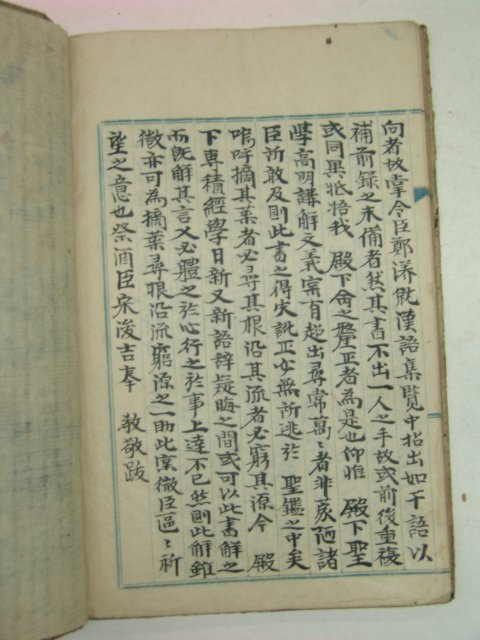 向者故掌令臣鄭瀁就漢語集覽中拈出如干語以
補前錄之未備者然其書不出一人之手故或前後重複
或同異牴牾我 殿下命之釐正者為是也仰惟 殿下聖
學高明講解文義寔有超出尋常萬〻者非蒙陋諸
臣所敢及則此書之得失訛正安無所逃於 聖鑑之中矣
嗚呼摘其葉者必尋其根沿其流者必窮其源今 殿
下專積經學日新又新語辞疑晦之間或可以此書解之
而旣解其言又必體之於心行之於事上達不已然則此解雖
微亦可為摘葉尋根沿流窮源之一助此宲微臣區〻祈
望之意也祭酒臣宋浚吉奉 教敬跋